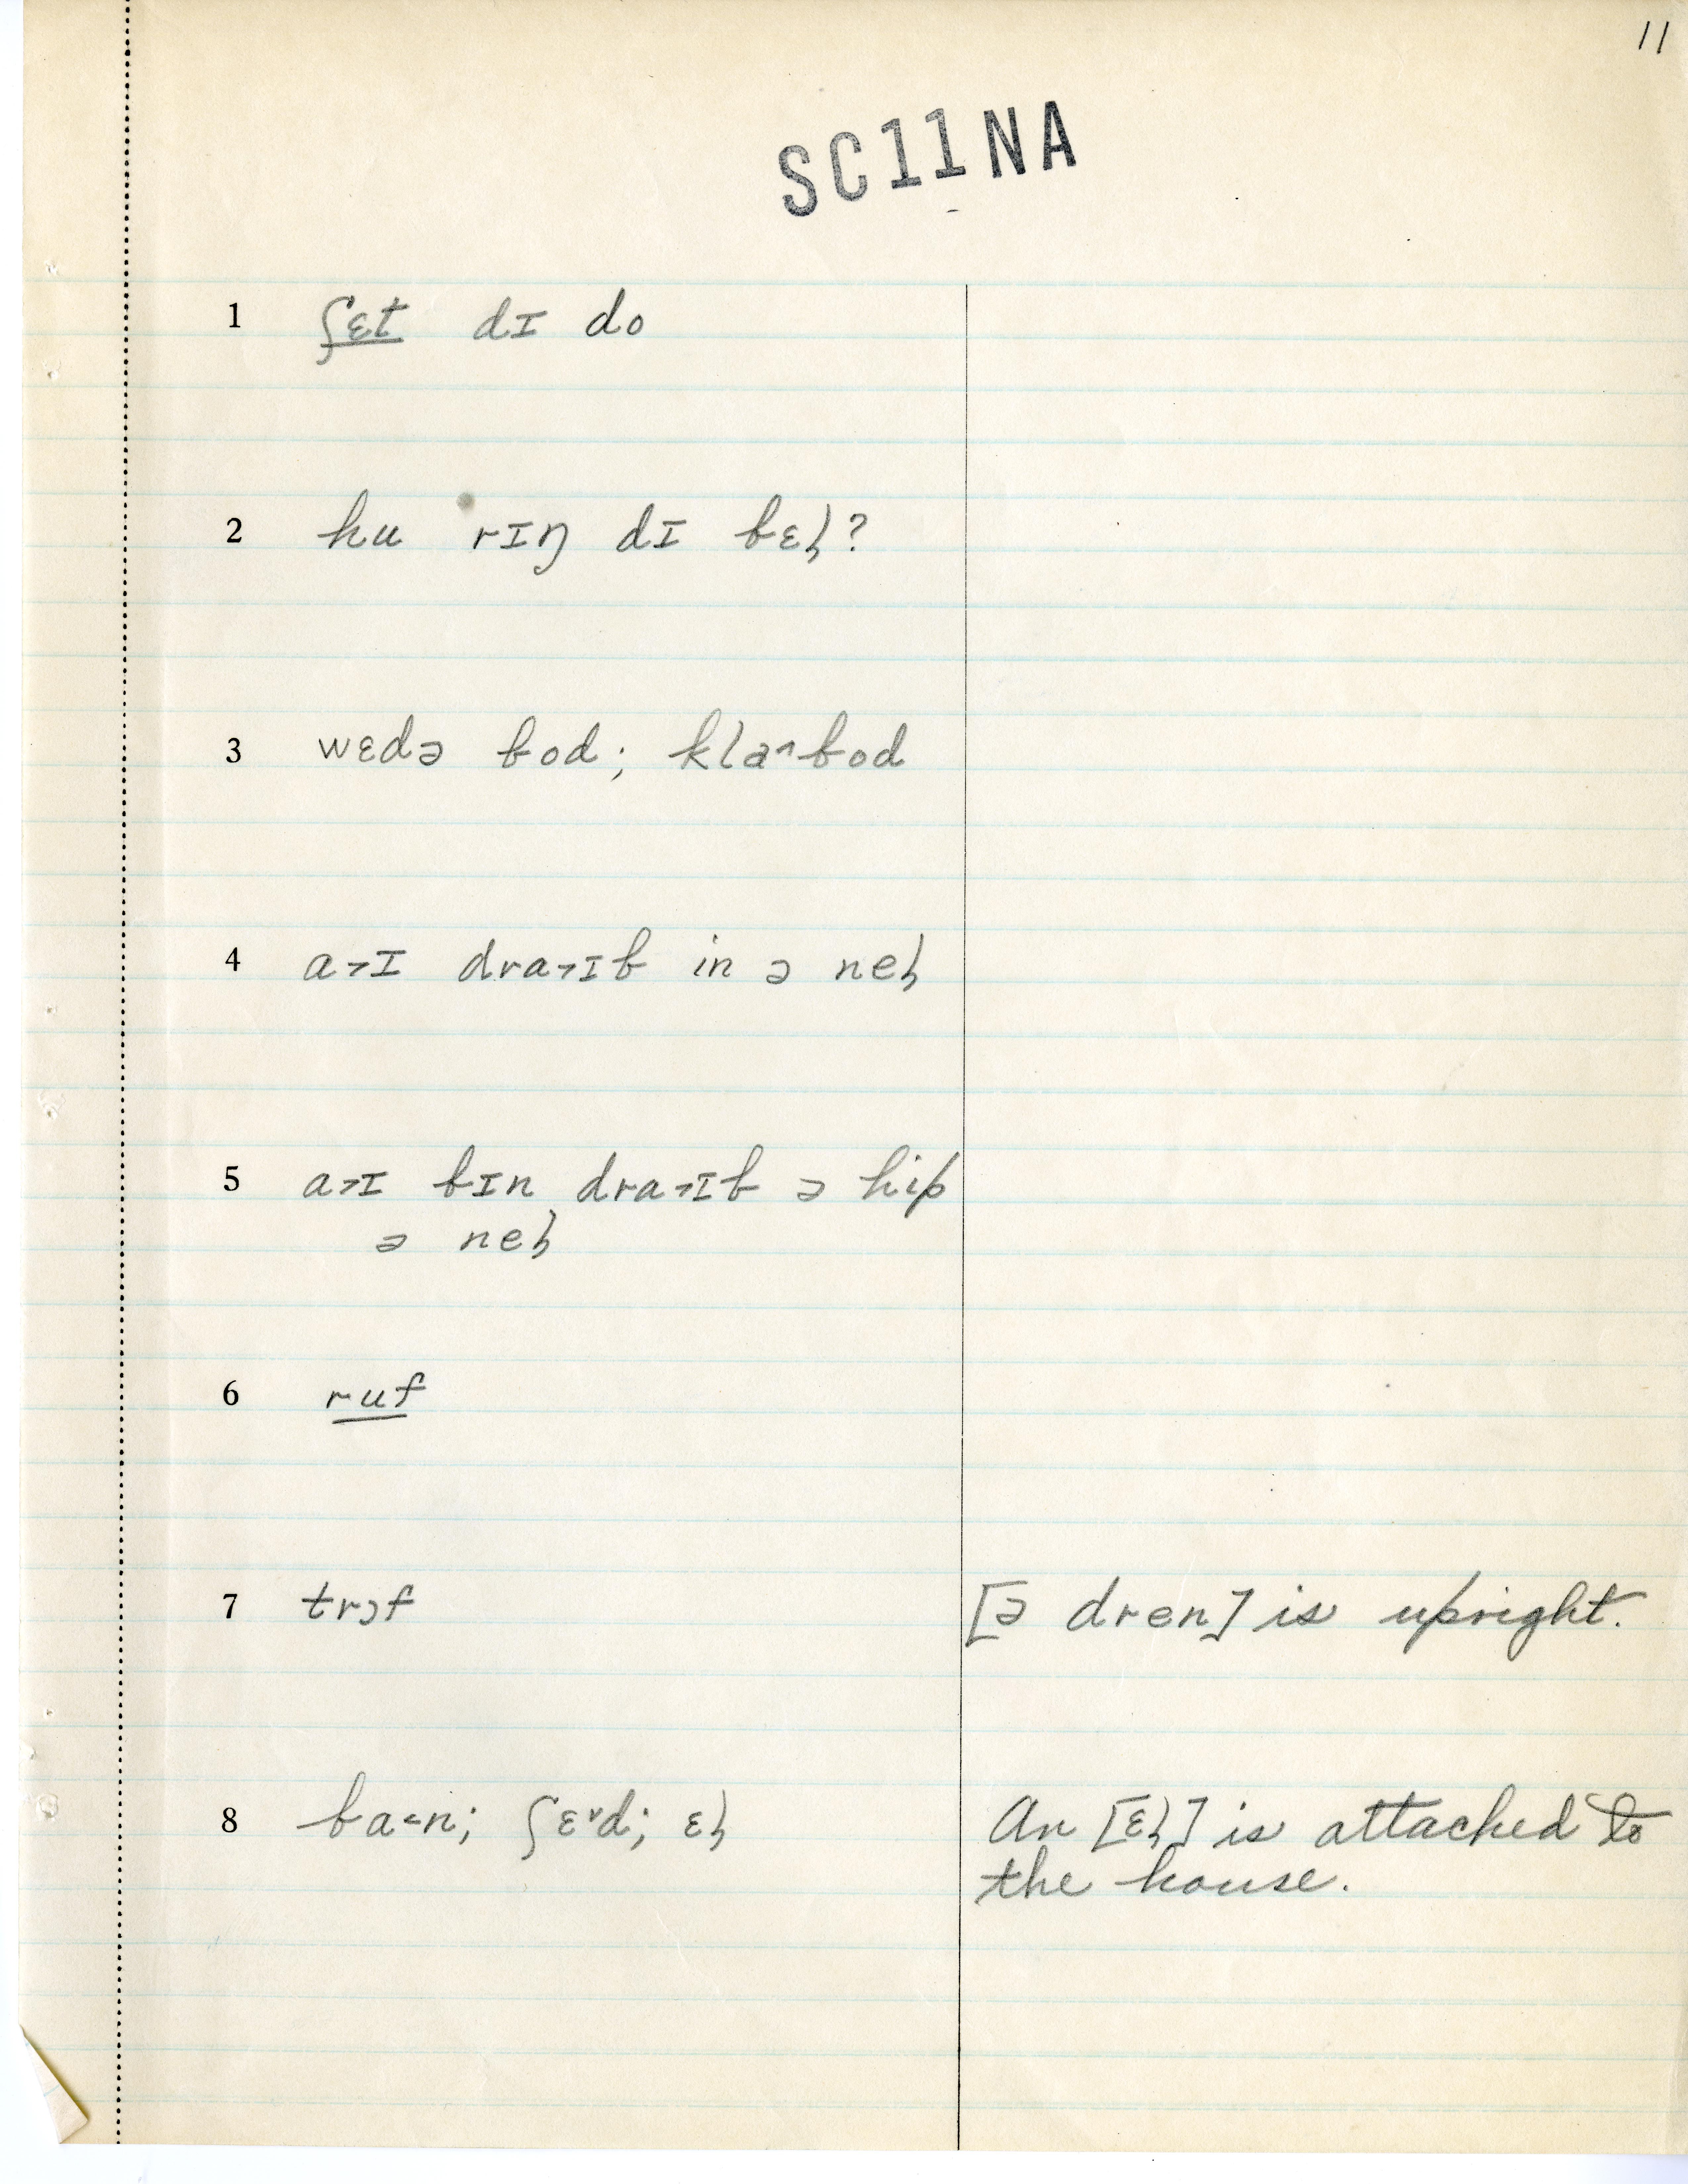 11
SC11NA
1 ʃɛt dɪ do
2 hu rɪŋ dɪ bɛɫ?
3 wɛdə bod; klɑ˄bod
4 a˃ɪ dra˃ɪb in ə neɫ
5 a˃ɪ bɪn dra˃ɪb ə hip
ə neɫ
6 ruf
7 trɔf [ə dren] is upright.
8 ba˂n; ʃɛ˅d; ɛɫ An [ɛɫ] is attached to
the house.